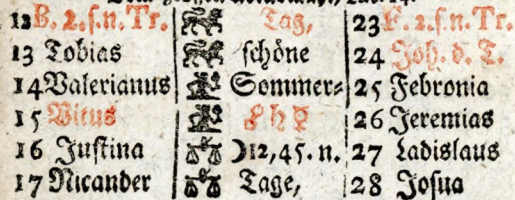 12 B. 2. s. n. Tr. Tag, 23 F. 2. s. n. Tr.
13 Tobias schöne 24 Joh. d. T.
14 Valerianus Sommer= 25 Febronia
15 Vitus ♄ ☿ 26 Jeremias
16 Justina ☽12,45. n. 27 Ladislaus
17 Nicander Tage, 28 Josua